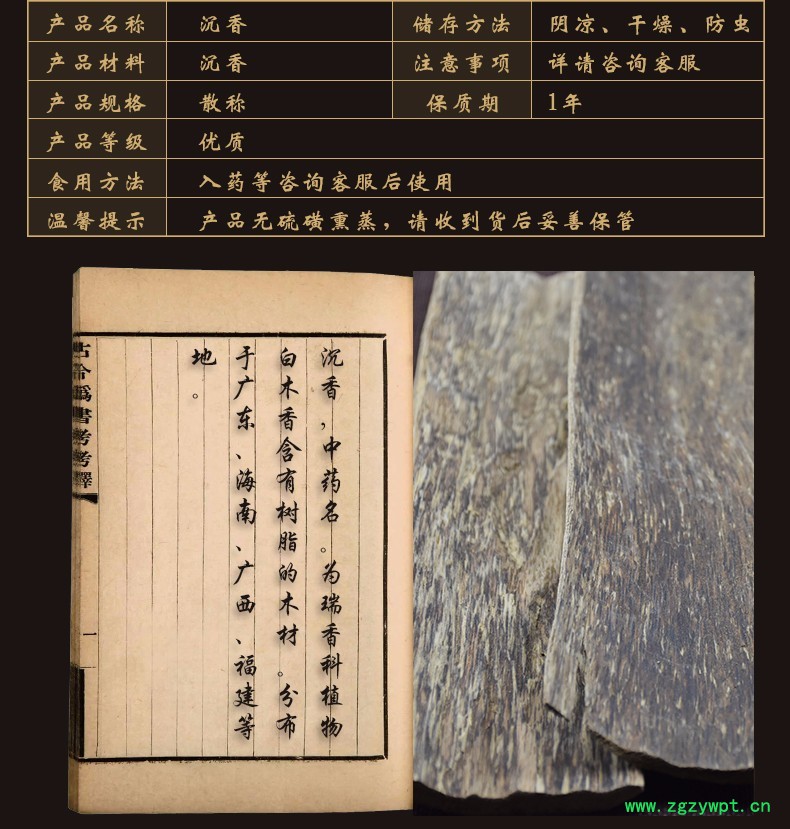 产品名称 沉香 储存方法 阴凉、干燥、防虫
产品材料 沉香 注意事项 详请咨询客服
产品规格 散称 保质期 1年
产品等级 优质
食用方法 入药等咨询客服后使用
温馨提示 产品无硫磺熏蒸，请收到货后妥善保管
沉香，中药名。为瑞香科植物
白木香含有树脂的木材。分布
于广东、海南、广西、福建等
地。
古今伪書考考釋
一
www.zgzywpt.cn